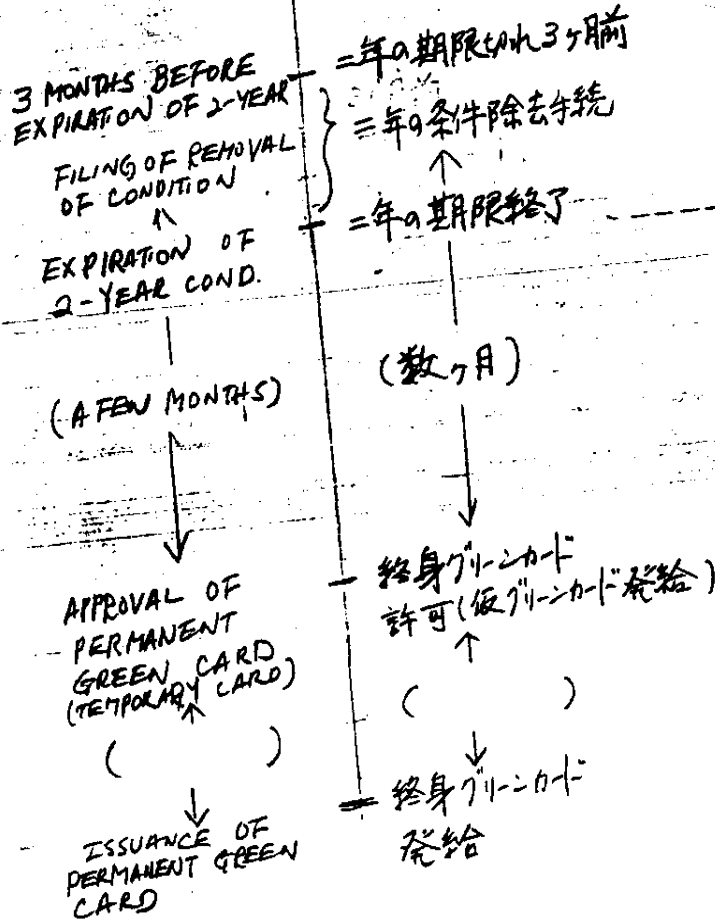 3 MONTHS BEFORE
EXPIRATION OF 2-YEAR
FILING OF REMOVAL
OF CONDITION
EXPIRATION OF
2-YEAR COND.
(A FEW MONTHS)
APPROVAL OF
PERMANENT
GREEN CARD
(TEMPORARY CARD)
( )
ISSUANCE OF
PERMANENT GREEN
CARD
二年の期限切れ3ヶ月前
二年の条件除去手続
二年の期限終了
(数ヶ月)
終身グリーンカード
許可(仮グリーンカード発給)
( )
終身グリーンカード
発給